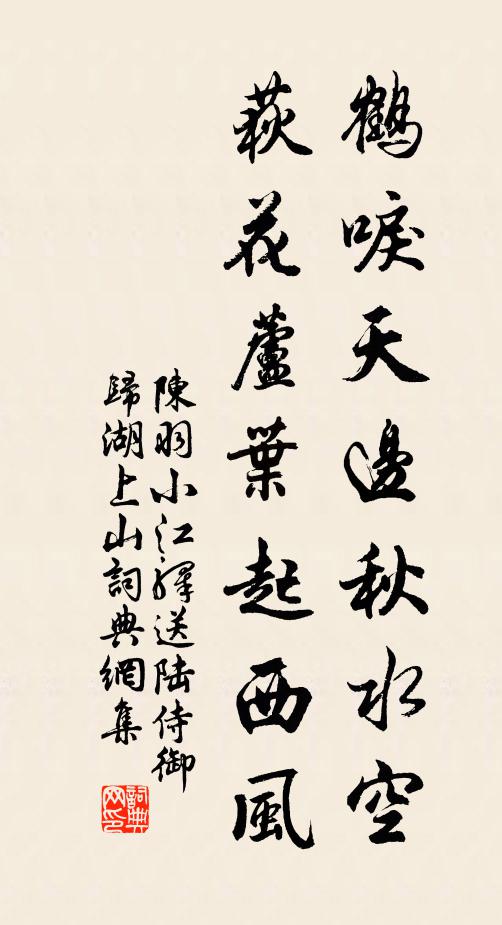 鶴唳天邊秋水空
荻花蘆葉起西風
陳羽小江驛送陸侍御
歸湖上山詞典網集
詞典
网印